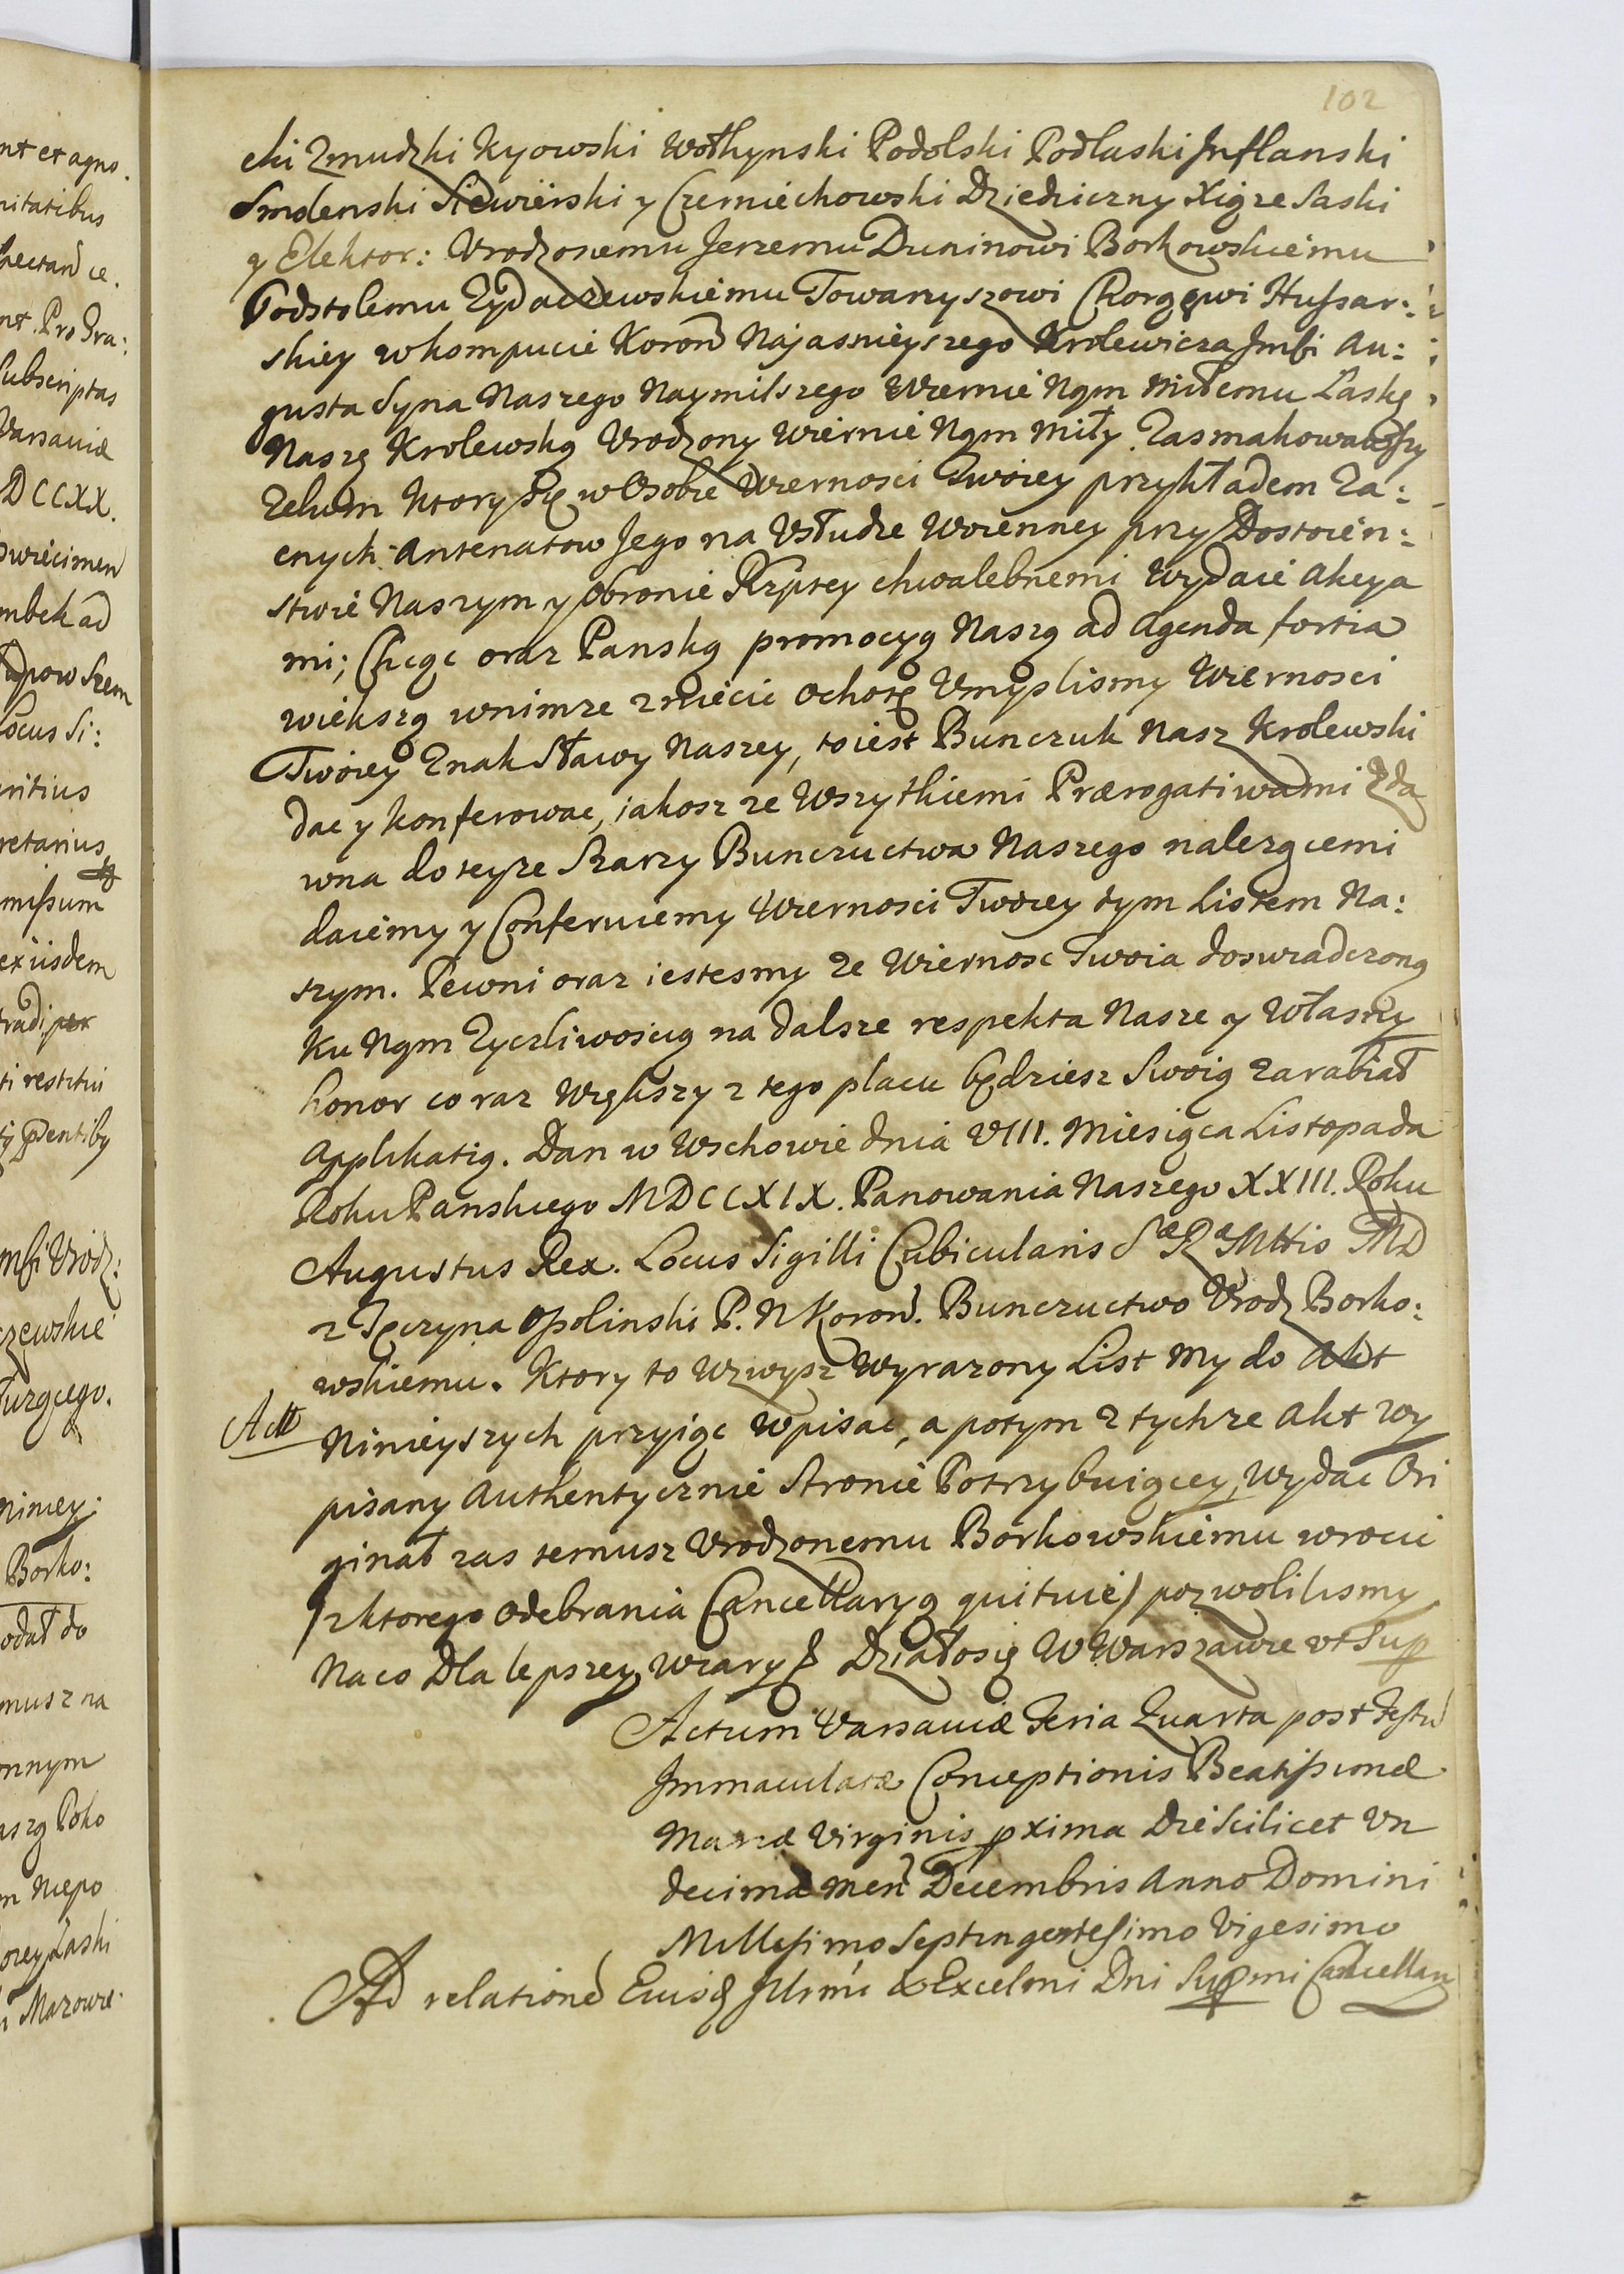 102
cki Zmudzki Kyowski Wołhynski Podolski Podlaski Inflanski
Smolenski Siewierski y Czerniechowski Dziedziczny Xiąze Saski
y Elektor: Urodzonemu Jerzemu Duninowi Borkowskiemu
Podstolemu Zydaczewskiemu Towarzyszowi Chorągwi Hussar:
skiey w kompucie Koronẽ Najasnieyszego Krolewicza Jmści Au:
gusta Syna Naszego Naymilszego Wiernie Nąm Miłemu Łaskę
Naszę Krolewską Urodzony Wiernie Nąm Miły. Zasmakowawszy
Zelum ktory się w Osobie Wiernosci Twoiey przykładem Za:
cnych Antenatow Jego na Usłudze Woienney przy Dostoień:
stwie Naszym y Obronie Rzptey chwalebnemi Wydaie Akcya
mi; Chcąc oraz Panską promocyą Naszą ad agenda fortia
większą w nimze zniecic Ochotę Umyslismy Wiernosci
Twoiey Znak Sławy Naszey, to iest Bunczuk Nasz Krolewski
dac y konferowac, jakosz ze Wszytkiemi Prærogatiwami Zda
wna do teyze Szarzy Bunczuctwa Naszego nalezącemi
daiemy y Conferuiemy Wiernosci Twoiey tym Listem Na:
szym. Pewni oraz iestesmy ze Wiernosc Twoia doswiadczoną
Ku Nąm Zyczliwoscią na dalsze respekta Nasze y Własny
honor co raz Większy z tego placu będziesz Swoią zarabiał
Applikatią. Dan w Wschowie dnia VIII. Miesiąca Listopada
Roku Panskiego MDCCXIX. Panowania Naszego XXIII. Roku
Augustus Rex. Locus Sigilli Cubicularis Sæ Ræ Mttis MD
z Tęczyna Ossolinski P. N Koronẽ. Bunczuctwo Urodz Borko:
wskiemu. Ktory to Wzwysz Wyrazony List My do Akt
Actt
Ninieyszych przyiąc Wpisac, a potym z tychze Akt Wy
pisany Authentycznie Stronie Potrzybuiącey, Wydac Ori
ginał zas temusz Urodzonemu Borkowskiemu wrocic
/z ktorego odebrania Cancellaryą quituie/ pozwolilismy
Na co Dla lepszey Wiary & Działo się W Warszawie ut Sup
Actum Varsaviæ Feria Quarta post Festũ
Immaculatæ Conceptionis Beatissimæ
Mariæ Virginis pxima Die Scilicet Un
decima Menẽ Decembris Anno Domini
Millesimo Septingentesimo Vigesimo
Ad relationẽ Eiusd Illrmi & Excelmi Dni Supmi Cancellarij
nt et agno.
nitatibus
nt. Pro Gra:
Subscriptas
Varsaviæ
DCCXX.
Locus Si:
retarius
missum
exiisdem
tradi per
ti restitui
mści Urodz:
Borko:
odał do
musz na
nnym
Niepo
Mazowie